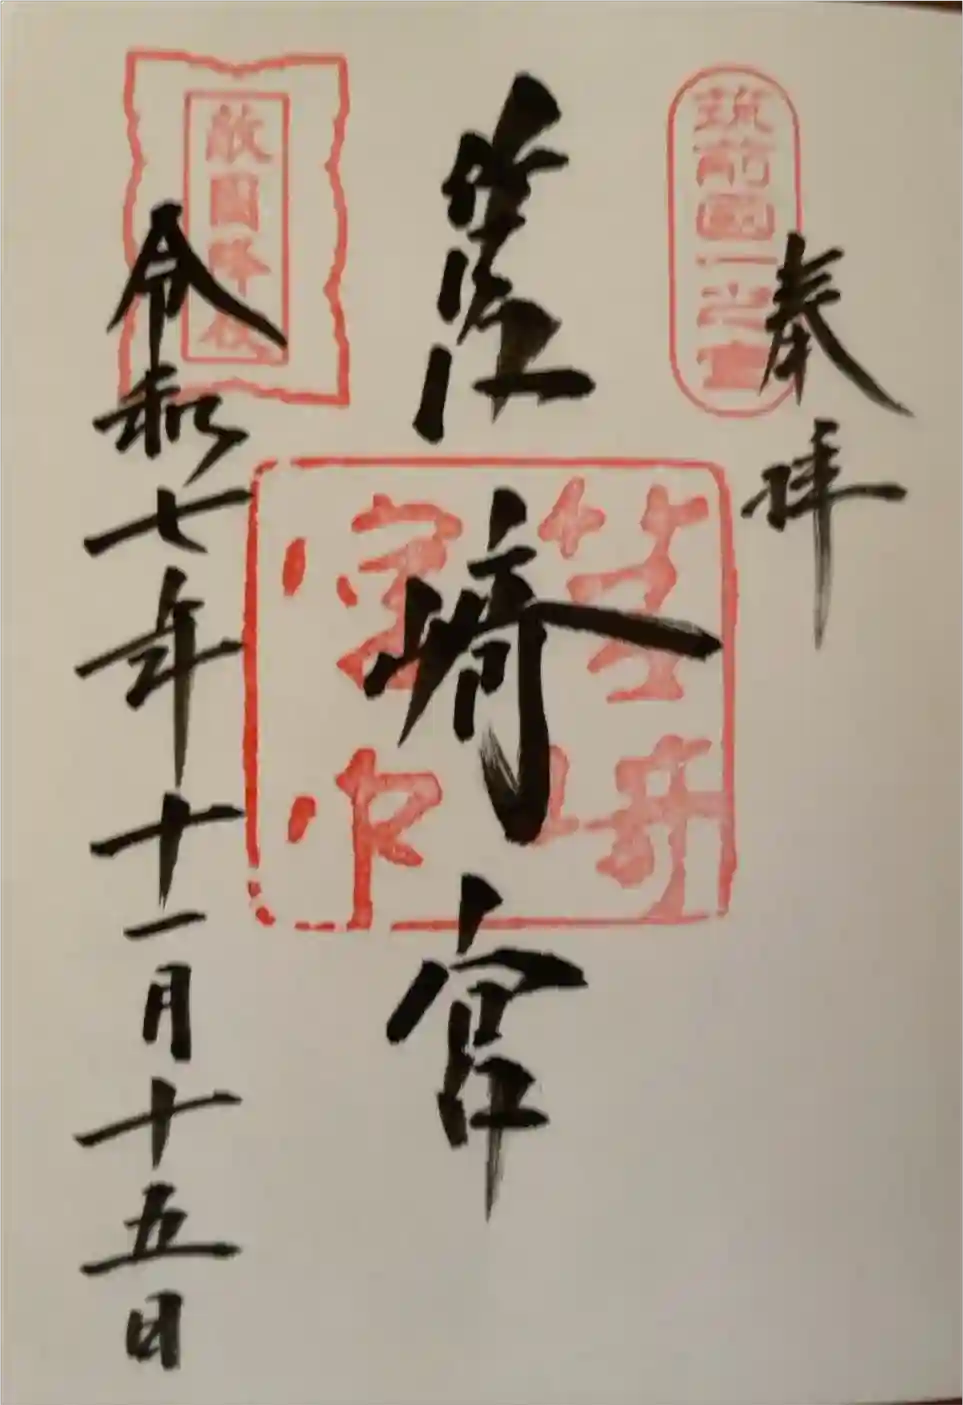 奉拝
筑前國一之宮
筥崎宮
筥崎
宮印
敵國降伏
令和七年十一月十五日